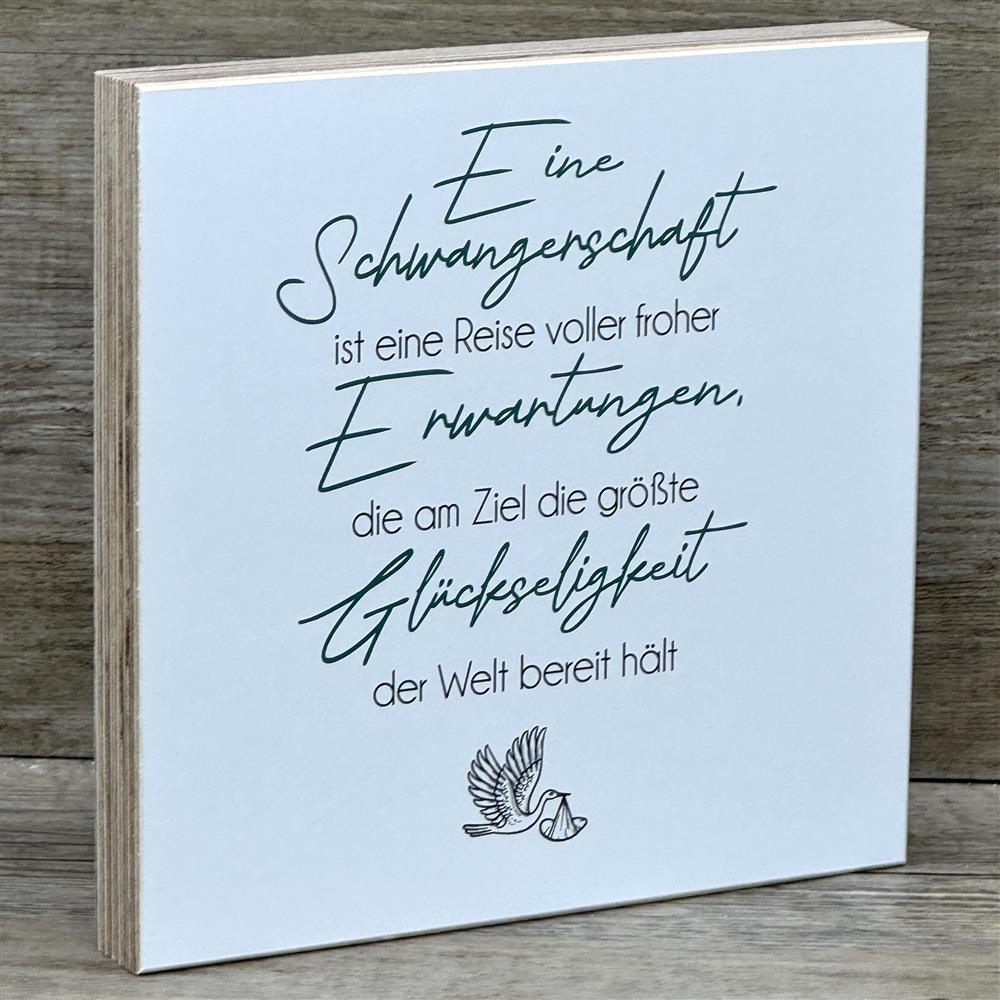 Eine
Schwangerschaft
ist eine Reise voller froher
Erwartungen,
die am Ziel die größte
Glückseligkeit
der Welt bereit hält